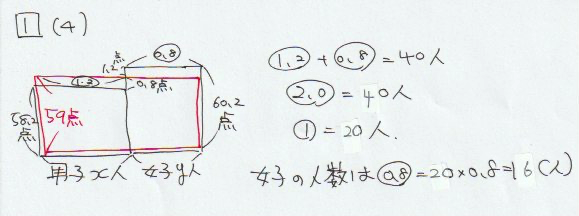 1 (4)
点 0.8
1.2
1.2 0.8点
58.2点 59点 60.2点
男子x人 女子y人
1.2 + 0.8 = 40人
2.0 = 40人
1 = 20人.
女子の人数は 0.8 = 20×0.8 = 16(人)